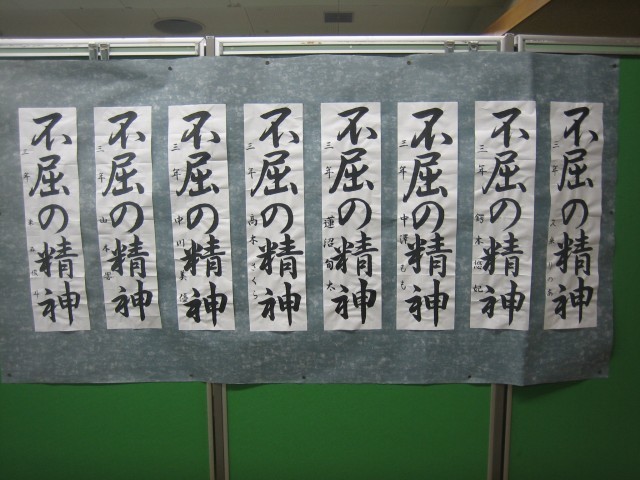 不屈の精神
三年
不屈の精神
三年
不屈の精神
三年 中澤もも
不屈の精神
三年 蓮沼旬太
不屈の精神
三年 高木さくら
不屈の精神
三年 中川
不屈の精神
三年 山本
不屈の精神
三年